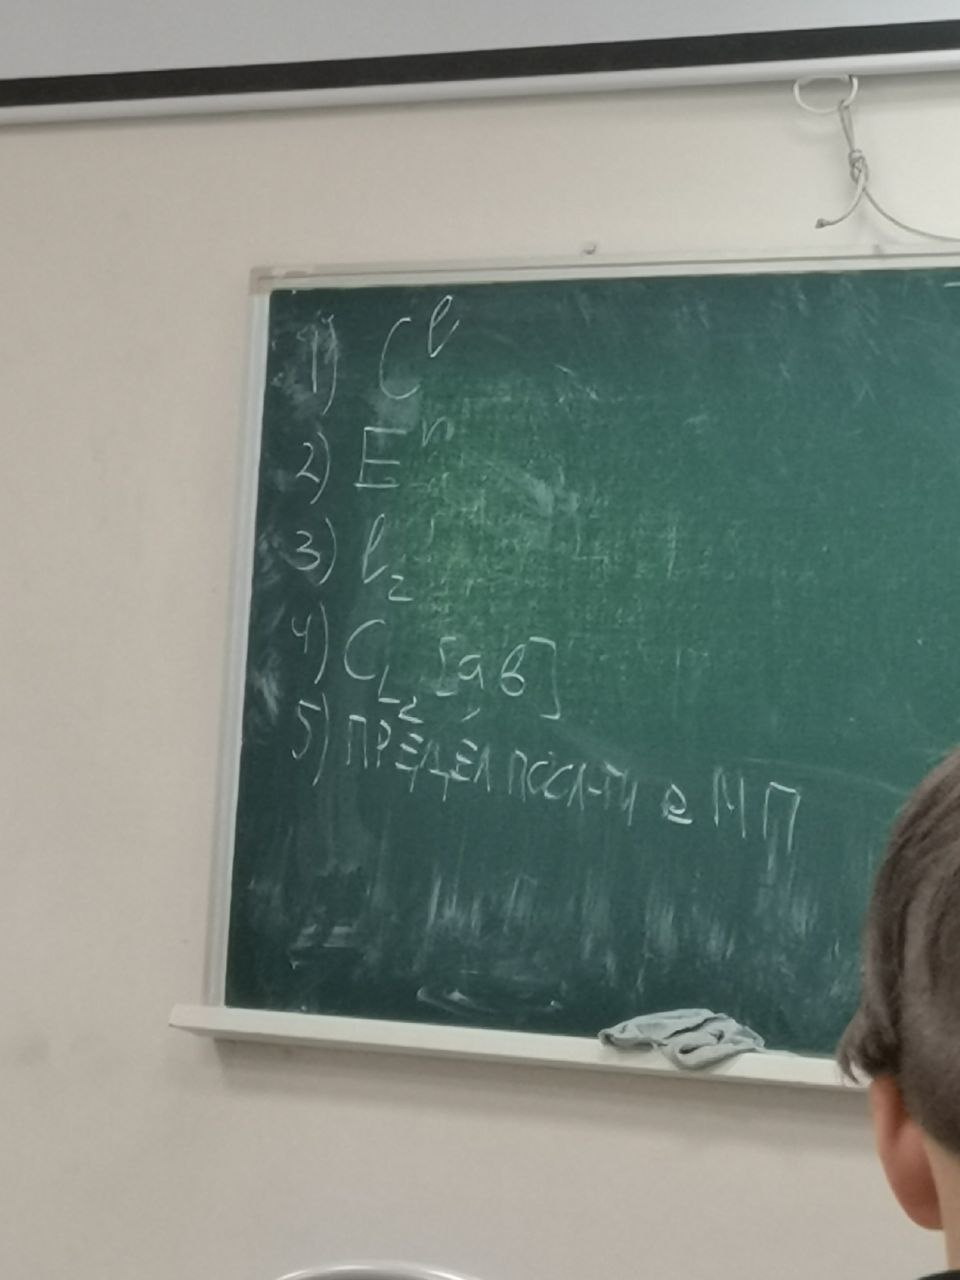 1) C^l
2) E^n
3) l_2
4) C_{L_2} [a, b]
5) ПРЕДЕЛ ПОСЛ-ТИ в МП